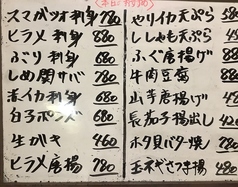 スマガツオ刺身 780
ヒラメ刺身 880
ぶり刺身 680
しめ関サバ 780
赤イカ刺身 680
白子ポン酢 680
生ガキ 460
ヒラメ唐揚 780
ヤリイカ天ぷら 580
ししゃも天ぷら
ふぐ唐揚げ 680
牛肉豆腐 880
山芋唐揚げ
長茄子揚出し
ホタ貝バター焼
玉ネギさつま揚 480